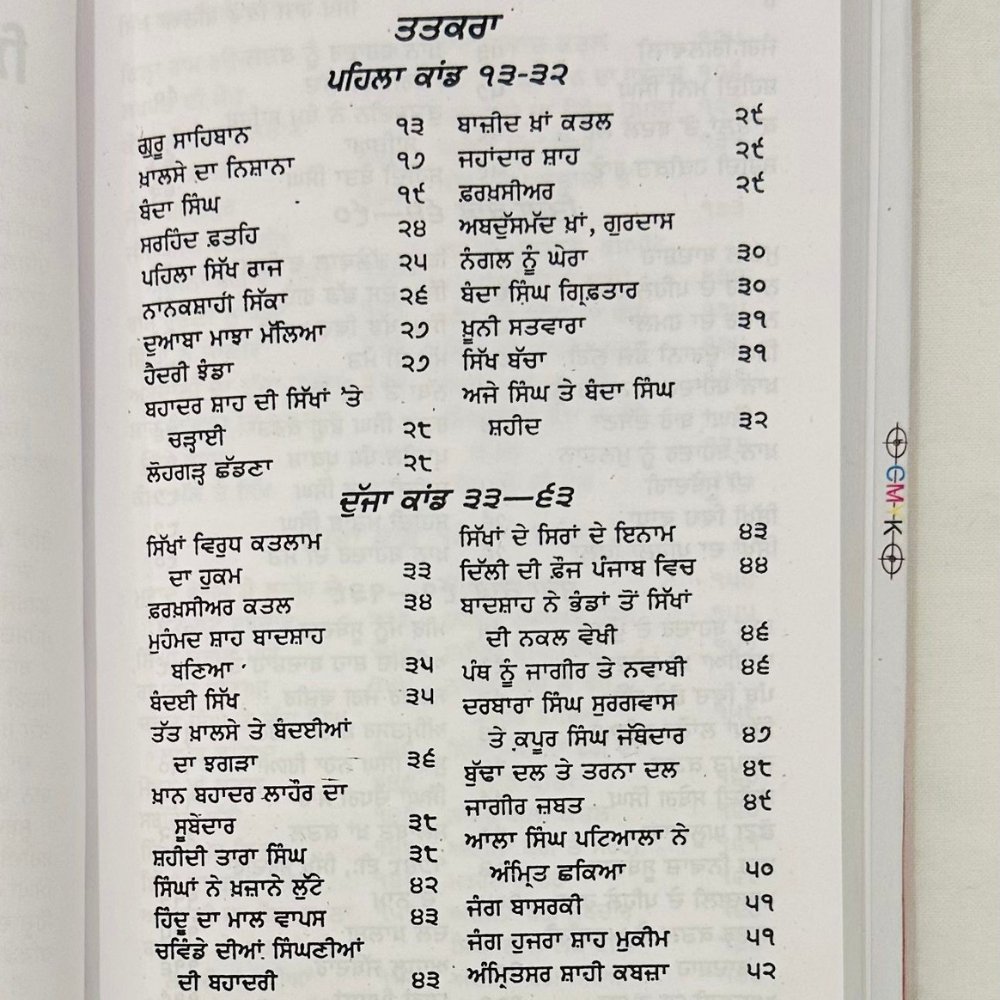 ਤਤਕਰਾ
ਪਹਿਲਾ ਕਾਂਡ ੧੩-੩੨
ਗੁਰੂ ਸਾਹਿਬਾਨ ੧੩
ਖ਼ਾਲਸੇ ਦਾ ਨਿਸ਼ਾਨਾ ੧੭
ਬੰਦਾ ਸਿੰਘ ੧੯
ਸਰਹਿੰਦ ਫ਼ਤਹਿ ੨੪
ਪਹਿਲਾ ਸਿੱਖ ਰਾਜ ੨੫
ਨਾਨਕਸ਼ਾਹੀ ਸਿੱਕਾ ੨੬
ਦੁਆਬਾ ਮਾਝਾ ਮੱਲਿਆ ੨੭
ਹੈਦਰੀ ਝੰਡਾ ੨੭
ਬਹਾਦਰ ਸ਼ਾਹ ਦੀ ਸਿੱਖਾਂ ’ਤੇ
ਚੜ੍ਹਾਈ ੨੮
ਲੋਹਗੜ੍ਹ ਛੱਡਣਾ ੨੮
ਬਾਜ਼ੀਦ ਖ਼ਾਂ ਕਤਲ ੨੯
ਜਹਾਂਦਾਰ ਸ਼ਾਹ ੨੯
ਫ਼ਰਖ਼ਸੀਅਰ ੨੯
ਅਬਦੁੱਸਮੱਦ ਖ਼ਾਂ, ਗੁਰਦਾਸ
ਨੰਗਲ ਨੂੰ ਘੇਰਾ ੩੦
ਬੰਦਾ ਸਿੰਘ ਗ੍ਰਿਫ਼ਤਾਰ ੩੦
ਖ਼ੂਨੀ ਸਤਵਾਰਾ ੩੧
ਸਿੱਖ ਬੱਚਾ ੩੧
ਅਜੇ ਸਿੰਘ ਤੇ ਬੰਦਾ ਸਿੰਘ
ਸ਼ਹੀਦ ੩੨
ਦੂੱਜਾ ਕਾਂਡ ੩੩—੬੩
ਸਿੱਖਾਂ ਵਿਰੁਧ ਕਤਲਾਮ
ਦਾ ਹੁਕਮ ੩੩
ਫ਼ਰਖ਼ਸੀਅਰ ਕਤਲ ੩੪
ਮੁਹੰਮਦ ਸ਼ਾਹ ਬਾਦਸ਼ਾਹ
ਬਣਿਆ ੩੫
ਬੰਦਈ ਸਿੱਖ ੩੫
ਤੱਤ ਖ਼ਾਲਸੇ ਤੇ ਬੰਦਈਆਂ
ਦਾ ਝਗੜਾ ੩੬
ਖ਼ਾਨ ਬਹਾਦਰ ਲਾਹੌਰ ਦਾ
ਸੂਬੇਦਾਰ ੩੮
ਸ਼ਹੀਦੀ ਤਾਰਾ ਸਿੰਘ ੩੮
ਸਿੰਘਾਂ ਨੇ ਖ਼ਜ਼ਾਨੇ ਲੁੱਟੇ ੪੨
ਹਿੰਦੂ ਦਾ ਮਾਲ ਵਾਪਸ ੪੩
ਚਵਿੰਡੇ ਦੀਆਂ ਸਿੰਘਣੀਆਂ
ਦੀ ਬਹਾਦਰੀ ੪੩
ਸਿੱਖਾਂ ਦੇ ਸਿਰਾਂ ਦੇ ਇਨਾਮ ੪੩
ਦਿੱਲੀ ਦੀ ਫ਼ੌਜ ਪੰਜਾਬ ਵਿਚ ੪੪
ਬਾਦਸ਼ਾਹ ਨੇ ਭੰਡਾਂ ਤੋਂ ਸਿੱਖਾਂ
ਦੀ ਨਕਲ ਵੇਖੀ ੪੬
ਪੰਥ ਨੂੰ ਜਾਗੀਰ ਤੇ ਨਵਾਬੀ ੪੬
ਦਰਬਾਰਾ ਸਿੰਘ ਸੁਰਗਵਾਸ
ਤੇ ਕਪੂਰ ਸਿੰਘ ਜੱਥੇਦਾਰ ੪੭
ਬੁੱਢਾ ਦਲ ਤੇ ਤਰਨਾ ਦਲ ੪੮
ਜਾਗੀਰ ਜ਼ਬਤ ੪੯
ਆਲਾ ਸਿੰਘ ਪਟਿਆਲਾ ਨੇ
ਅੰਮ੍ਰਿਤ ਛਕਿਆ ੫੦
ਜੰਗ ਬਾਸਰਕੀ ੫੧
ਜੰਗ ਹੁਜਰਾ ਸ਼ਾਹ ਮੁਕੀਮ ੫੧
ਅੰਮ੍ਰਿਤਸਰ ਸ਼ਾਹੀ ਕਬਜ਼ਾ ੫੨
CMYK